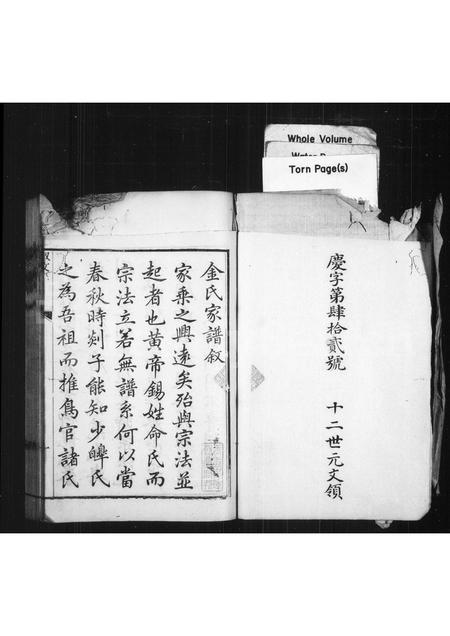 Whole Volume
Torn Page(s)
慶字第肆拾貳號 十二世元文領
金氏家譜叙
家乘之興遠矣殆與宗法並
起者也黄帝錫姓命氏而
宗法立若無譜系何以當
春秋時剡子能知少皥氏
之為吾祖而推鳥官諸氏